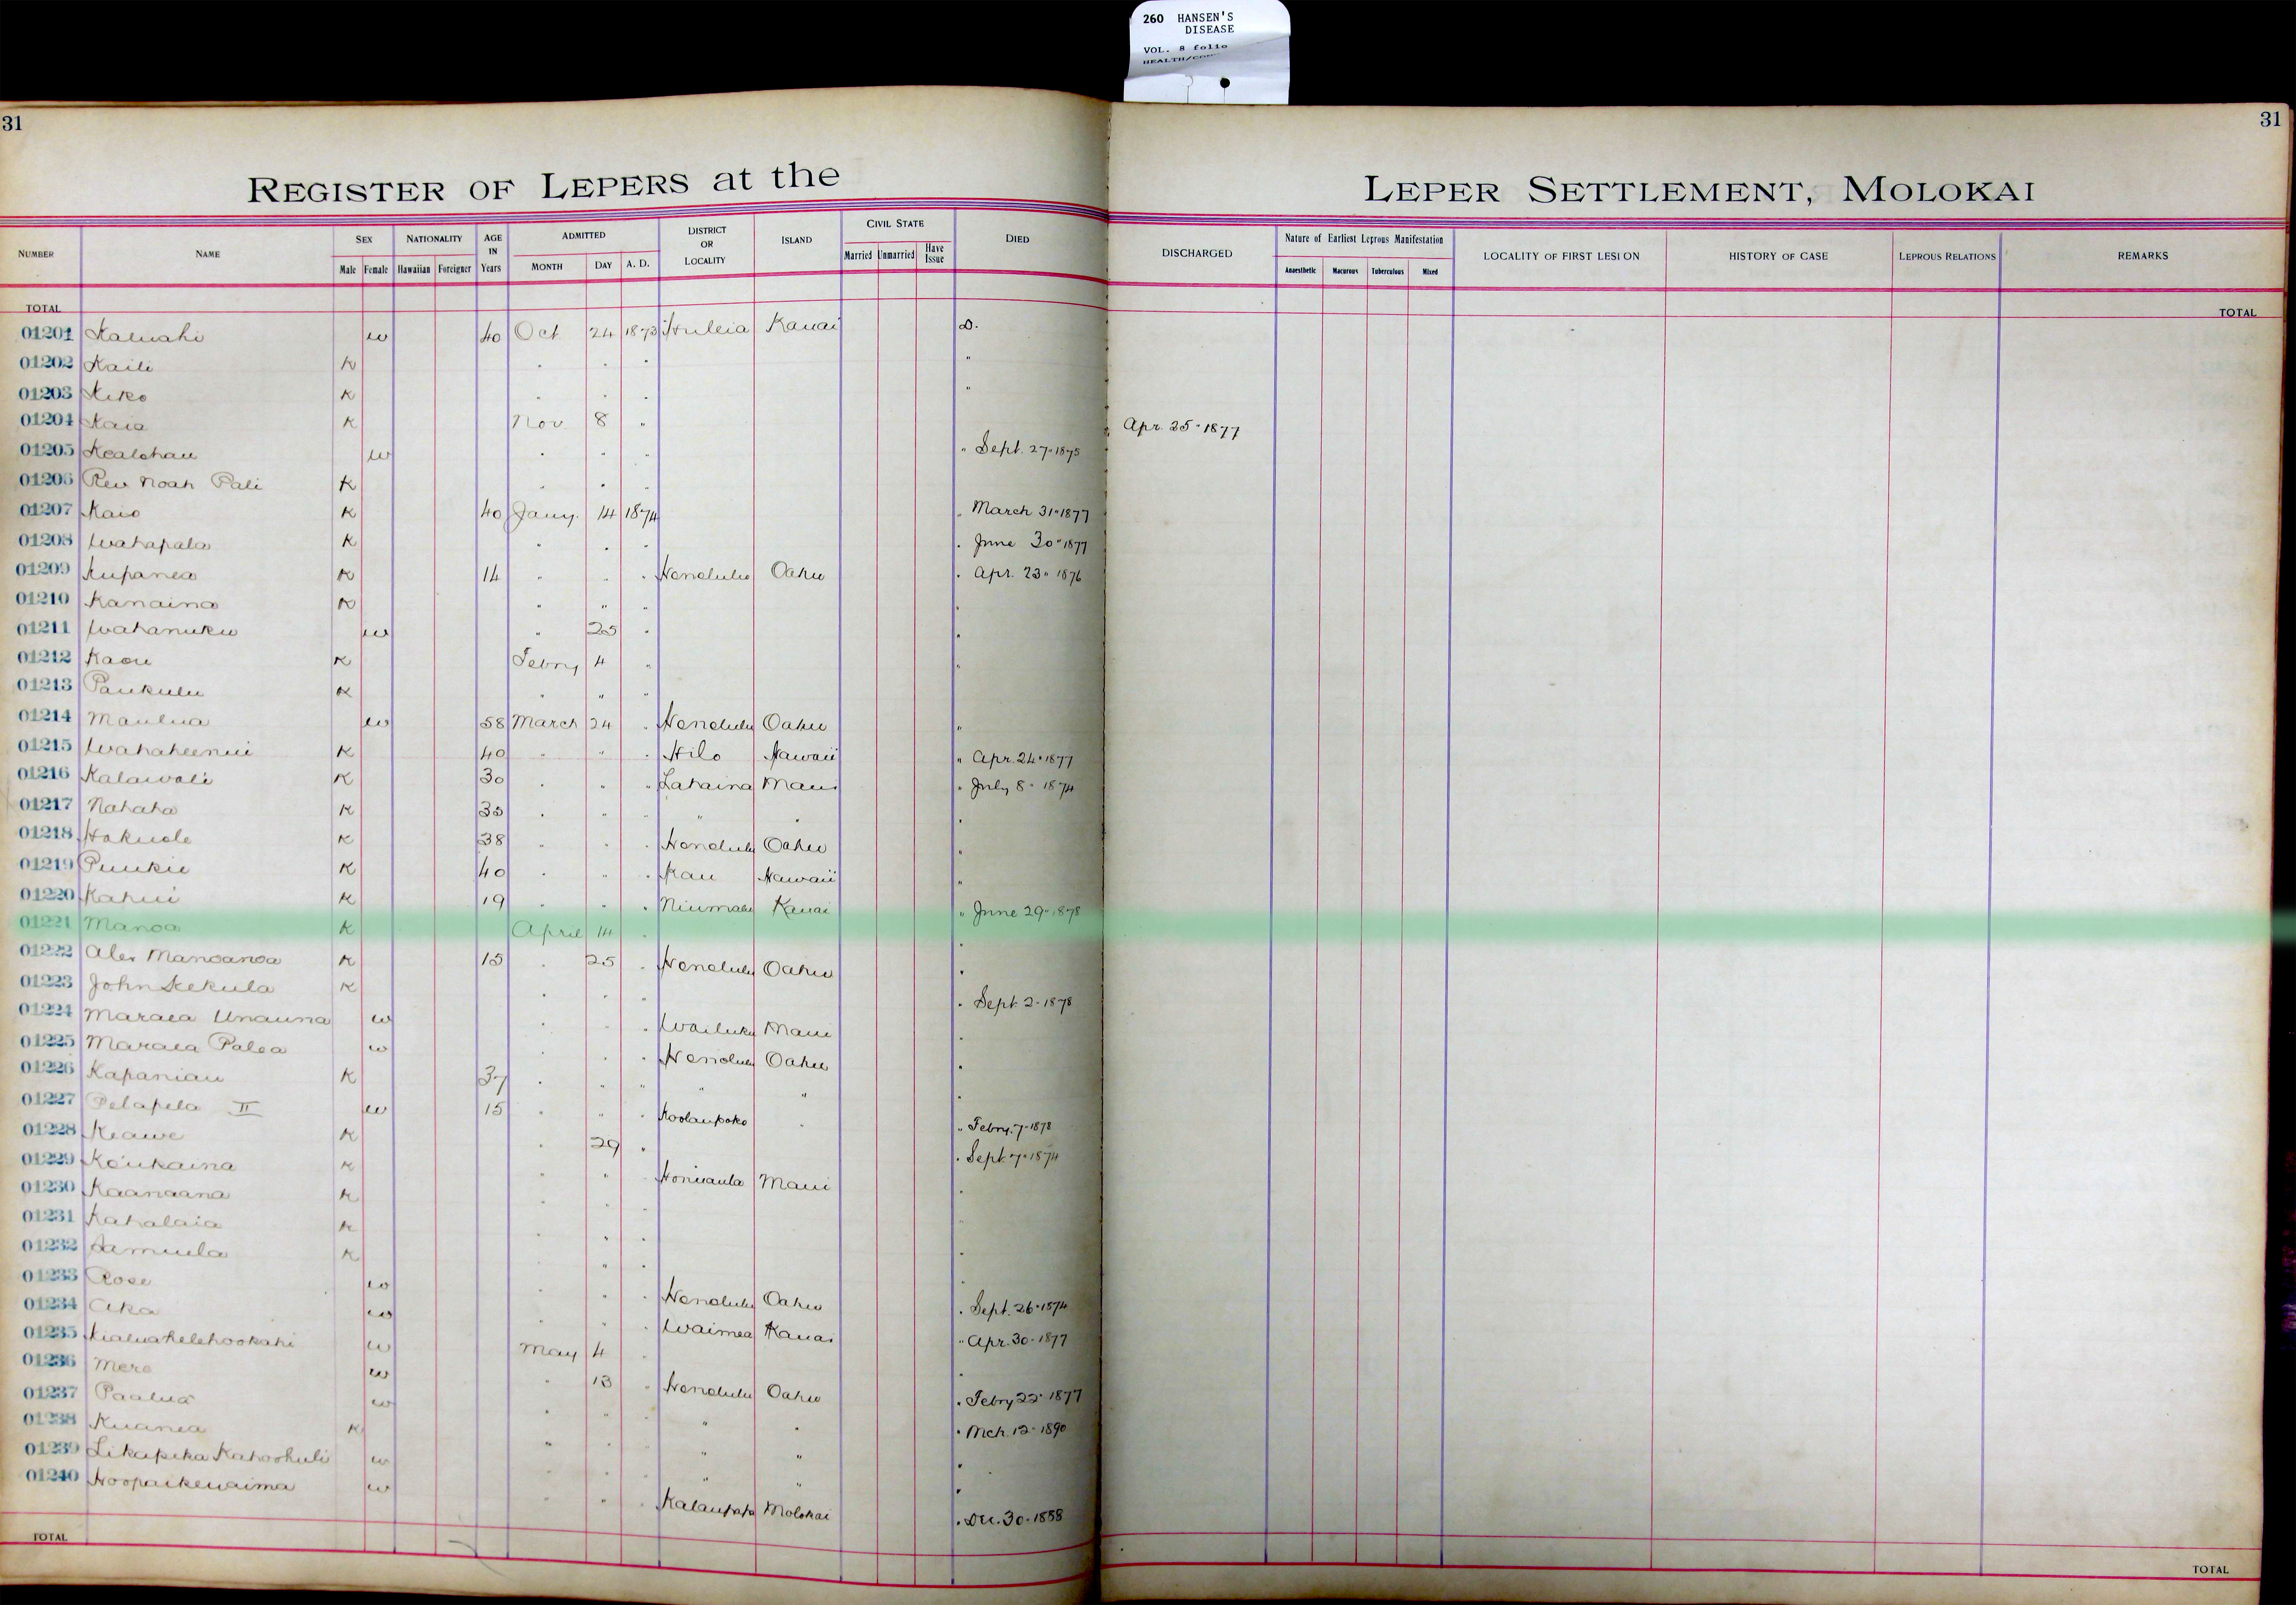 260 HANSEN'S
DISEASE
VOL. 8 folio
31
31
REGISTER OF LEPERS at the
LEPER SETTLEMENT, MOLOKAI
NUMBER NAME SEX Male Female NATIONALITY Hawaiian Foreigner AGE IN Years ADMITTED MONTH DAY A. D. DISTRICT OR LOCALITY ISLAND CIVIL STATE Married Unmarried Have Issue DIED DISCHARGED Nature of Earliest Leprous Manifestation Anaesthetic Macurous Tuberculous Mixed LOCALITY OF FIRST LESION HISTORY OF CASE LEPROUS RELATIONS REMARKS
TOTAL TOTAL
01201 Kaluahi w 40 Oct 24 1873 Huleia Kauai D.
01202 Kaili K " " " "
01203 Keko K " " " "
01204 Kaia K Nov 8 " Apr. 25" 1877
01205 Kealohau w " " " " Sept. 27" 1875
01206 Rev Noah Pali K " " "
01207 Kaio K 40 Jany. 14 1874 " March 31" 1877
01208 Wahapala K " " " " June 30" 1877
01209 Kupanea K 14 " " " Honolulu Oahu " Apr. 23" 1876
01210 Kanaina K " " " "
01211 Wahanuku w " 25 " "
01212 Kaou K Febry 4 " "
01213 Paukulu K " " "
01214 Maulua w 58 March 24 " Honolulu Oahu "
01215 Wahaheenui K 40 " " " Hilo Hawaii " Apr. 24" 1877
01216 Kalawali K 30 " " " Lahaina Maui " July 8" 1874
01217 Nahaha K 35 " " " " " "
01218 Hakuole K 38 " " " Honolulu Oahu "
01219 Puukie K 40 " " " Kau Hawaii "
01220 Kahui K 19 " " " Niumalu Kauai " June 29" 1878
01221 Manoa K April 14 " "
01222 Alex Manoanoa K 15 " 25 " Honolulu Oahu "
01223 John Kekula K " " " " Sept. 2" 1878
01224 Maraea Unauna w " " " Wailuku Maui "
01225 Maraea Palea w " " " Honolulu Oahu "
01226 Kapaniau K 37 " " " " " "
01227 Pelapela II w 15 " " " Koolaupoko " " Febry. 7" 1878
01228 Keawe K " 29 " " Sept 7" 1874
01229 Koukaina K " " " Honuaula Maui "
01230 Kaanaana K " " " "
01231 Kahalaia K " " "
01232 Samuela K " " "
01233 Rose w " " " Honolulu Oahu " Sept. 26" 1874
01234 Aka w " " " Waimea Kauai " Apr. 30" 1877
01235 w May 4 " "
01236 Mere w " 13 " Honolulu Oahu " Febry 22" 1877
01237 Paalua w " " " " " " Mch. 12" 1890
01238 Kuanea K " " " " " "
01239 Likapeka Kahoohuli w " " " " " "
01240 Hoopaikewaima w " " " Kalaupapa Molokai " Dec. 30" 1888
TOTAL TOTAL